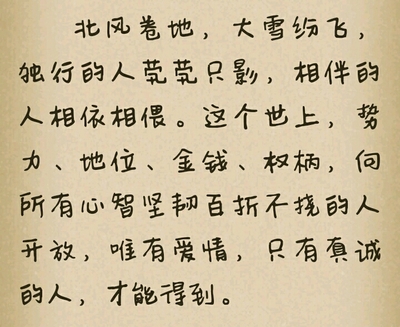 北风卷地，大雪纷飞，
独行的人茕茕只影，相伴的
人相依相偎。这个世上，势
力、地位、金钱、权柄，向
所有心智坚韧百折不挠的人
开放，唯有爱情，只有真诚
的人，才能得到。